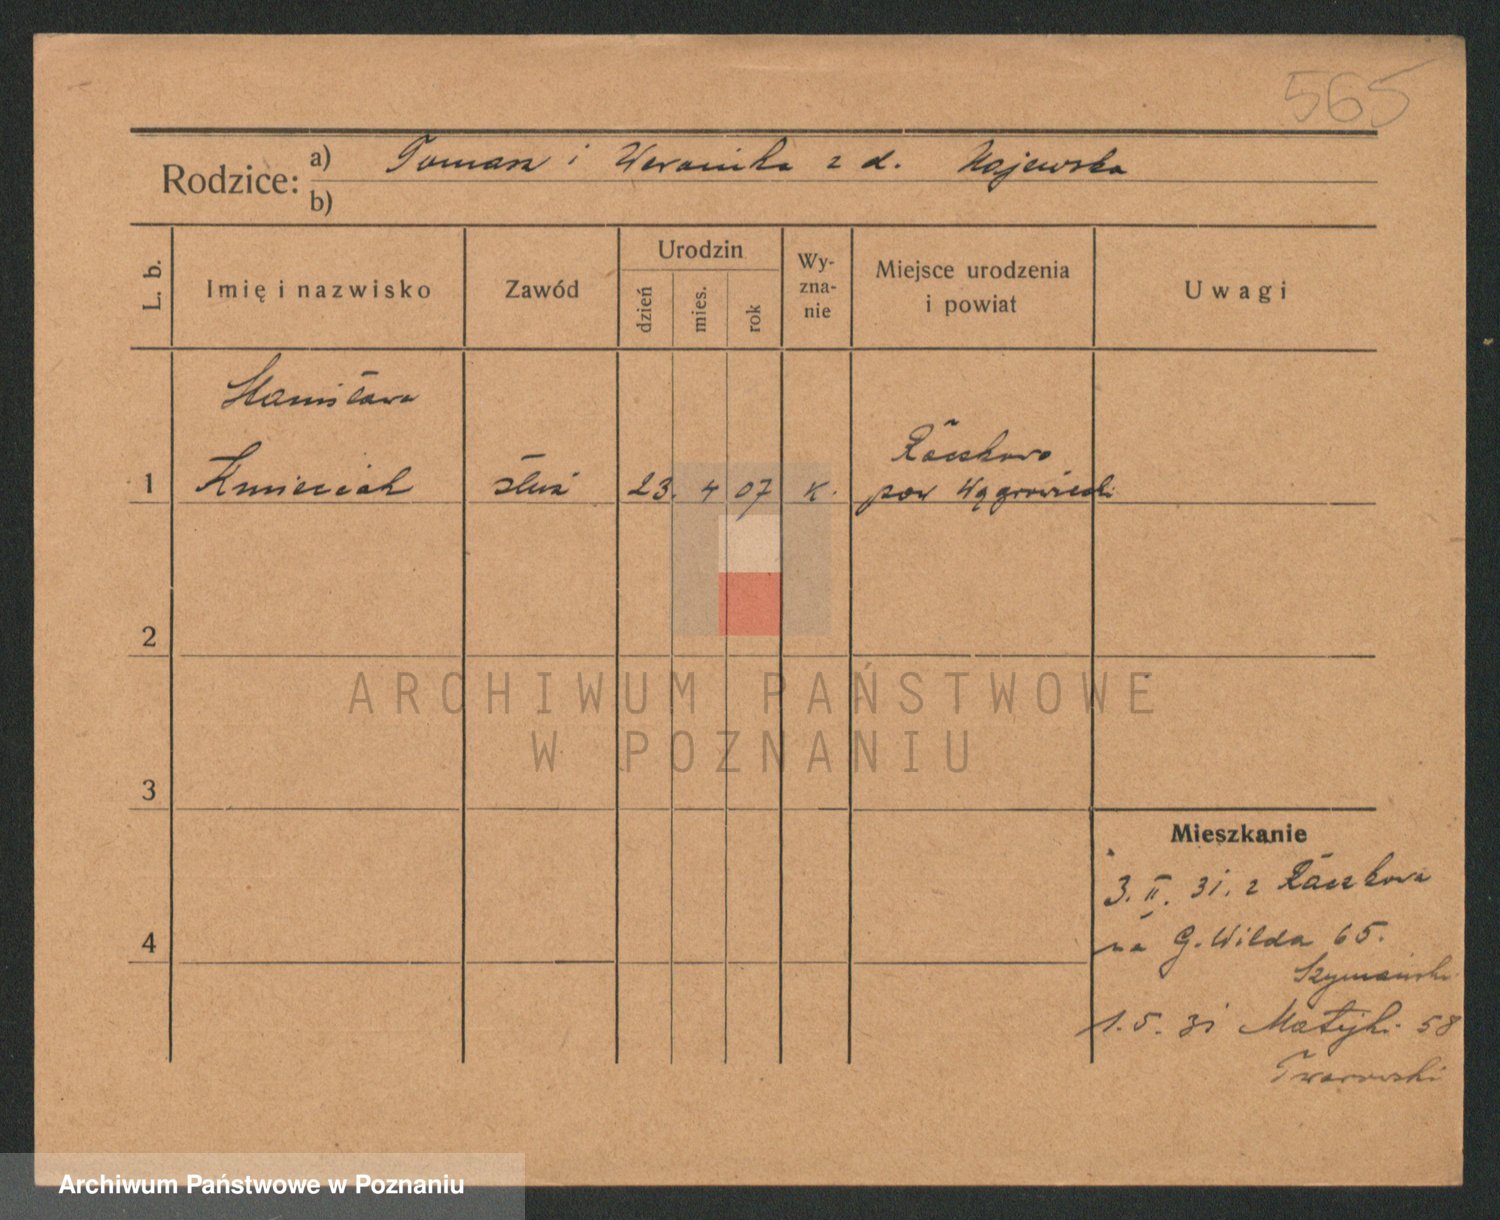 565
Rodzice: a) Tomasz i Weronika z d. Majewska
b)
L. b.
Imię i nazwisko
Zawód
Urodzin
dzień
mies.
rok
Wy-
zna-
nie
Miejsce urodzenia
i powiat
Uwagi
Stanisława
1 Kmieciak służ 23. 4 07 k. Raczkowo
pow Wągrowiecki
2
3
4
ARCHIWUM PAŃSTWOWE
W POZNANIU
Mieszkanie
3. II. 31. z Raczkowa
na G. Wilda 65.
Szymański
1. 5. 31 Matejki 58
Twarowski
Archiwum Państwowe w Poznaniu